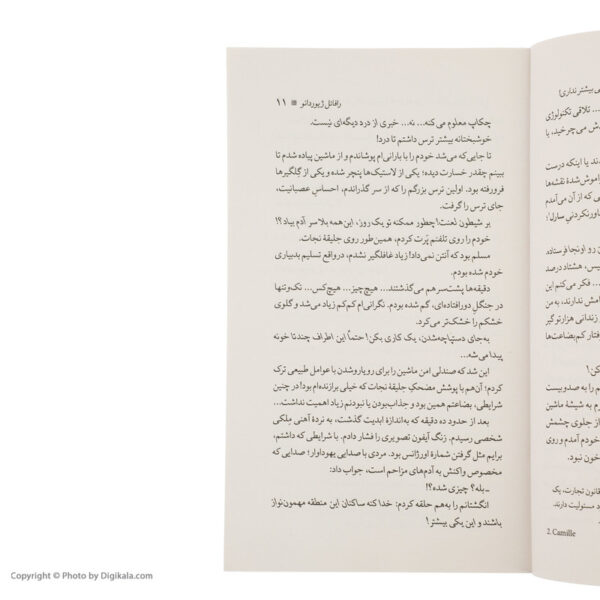 رافائل ژیوردانو ■ ۱۱
چکاپ معلوم می‌کنه... نه... خبری از درد دیگه‌ای نیست.
خوشبختانه بیشتر ترس داشتم تا درد!
تا جایی که می‌شد خودم را با بارانی‌ام پوشاندم و از ماشین پیاده شدم تا
ببینم چقدر خسارت دیده؛ یکی از لاستیک‌ها پنچر شده و یکی از گِلگیرها
فرورفته بود. اولین ترس بزرگم را که از سر گذراندم، احساسِ عصبانیت،
جای ترس را گرفت.
بر شیطون لعنت! چطور ممکنه تو یک روز، این‌همه بلا سر آدم بیاد؟!
خودم را روی تلفنم پَرت کردم، همین‌طور روی جلیقهٔ نجات.
مسلم بود که آنتن نمی‌داد! زیاد غافلگیر نشدم، درواقع تسلیم بدبیاری
خودم شده بودم.
دقیقه‌ها پشت‌سرهم می‌گذشتند... هیچ‌چیز... هیچ‌کس... تک‌وتنها
در جنگلِ دورافتاده‌ای، گم شده بودم. نگرانی‌ام کم‌کم زیاد می‌شد و گلوی
خشکم را خشک‌تر می‌کرد.
به‌جای دستپاچه‌شدن، یک کاری بکن! حتماً این اطراف چندتا خونه
پیدا می‌شه...
این شد که صندلی امن ماشین را برای رویاروشدن با عوامل طبیعی ترک
کردم؛ آن‌هم با پوشش مضحکِ جلیقهٔ نجات که خیلی برازنده‌ام بود! در چنین
شرایطی، بضاعتم همین بود و جذاب‌بودن یا نبودنم زیاد اهمیت نداشت...
بعد از حدود ده دقیقه که به‌اندازهٔ ابدیت گذشت، به نردهٔ آهنی مِلکی
شخصی رسیدم. زنگ آیفون تصویری را فشار دادم. با شرایطی که داشتم،
برایم مثل گرفتن شمارهٔ اورژانس بود. مردی با صدایی یهوداوار؛ صدایی که
مخصوص واکنش به آدم‌های مزاحم است، جواب داد:
ـ بله؟ چیزی شده؟!
انگشتانم را به‌هم حلقه کردم: خدا کنه ساکنان این منطقه مهمون‌نواز
باشند و این یکی بیشتر!
ی بیشتر نداری!
... تلاقی تکنولوژی
ش می‌چرخید، یا
ند یا اینکه درست
راموش‌شدهٔ نقشه‌ها
ی که از آن می‌آمدم
اورنکردنیِ سارلِ؛
ن رو اونجا فرستاده.
یس، هشتاد درصد
... فکر می‌کنم این
امش ندارند، به من
زندانی هزارتو گیر
فتار کم‌بضاعت‌ها
بکن!
م را به صدوبیست
رم به شیشهٔ ماشین
از جلوی چشمش
خودم آمدم و روی
خون نبود.
قانون تجارت، یک
د مسئولیت دارند.
2. Camille
Copyright © Photo by Digikala.com